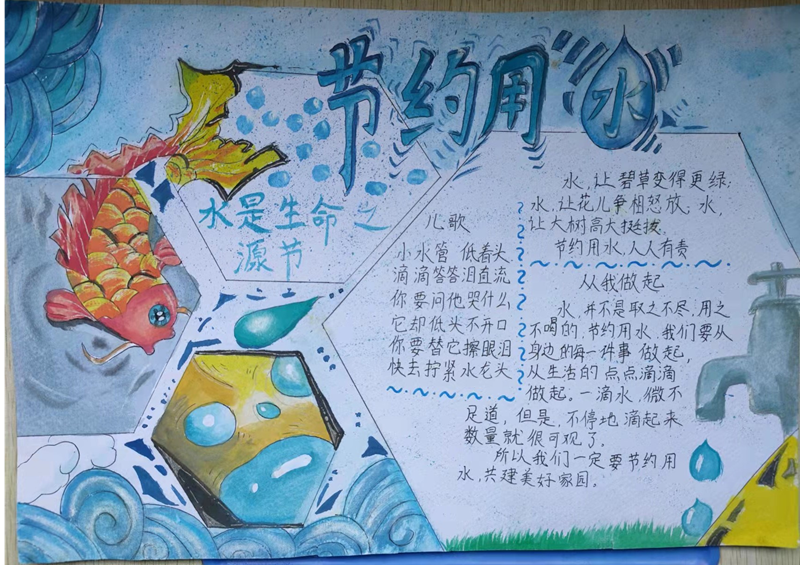 节约用水
水是生命之
源节
儿歌
小水管 低着头
滴滴答答泪直流
你要问他哭什么
它却低头不开口
你要替它擦眼泪
快去拧紧水龙头
水,让碧草变得更绿;
水,让花儿争相怒放;水,
让大树高大挺拔,
节约用水,人人有责
从我做起
水,并不是取之不尽,用之
不喝的,节约用水,我们要从
身边的每一件事做起,
从生活的点点滴滴
做起。一滴水,微不
足道,但是,不停地滴起来
数量就很可观了,
所以我们一定要节约用
水,共建美好家园。